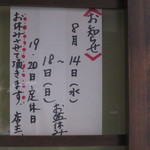 《お知らせ》
8月14日(水)
〜
18日(日)
お盆休み
19、20日定休日
お休みさせて頂きます。
店主